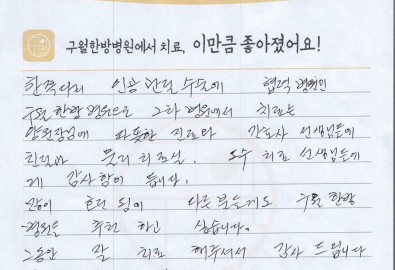 구월한방병원에서 치료, 이만큼 좋아졌어요!
한쪽다리 인공관절 수술에 협력 병원인
구월한방 병원으로 2차 병원에서 치료는
양원장님에 따뜻한 진료와 간호사 선생님들에
친절과 물리치료실, 도수치료 선생님들에
게 감사함이 듭니다.
많이 호전 됨에 다른 분들께도 구월 한방
병원을 추천 하고 싶습니다.
그동안 잘 치료 해주셔서 감사 드립니다